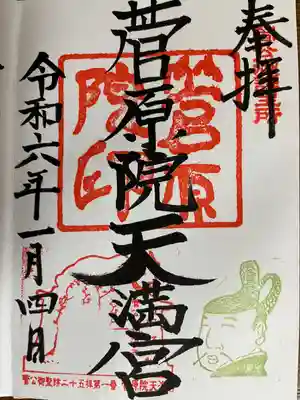 奉拝
菅原院天満宮
令和六年一月四日
菅原院印
菅公御聖跡二十五拝第一番 菅原院天満宮